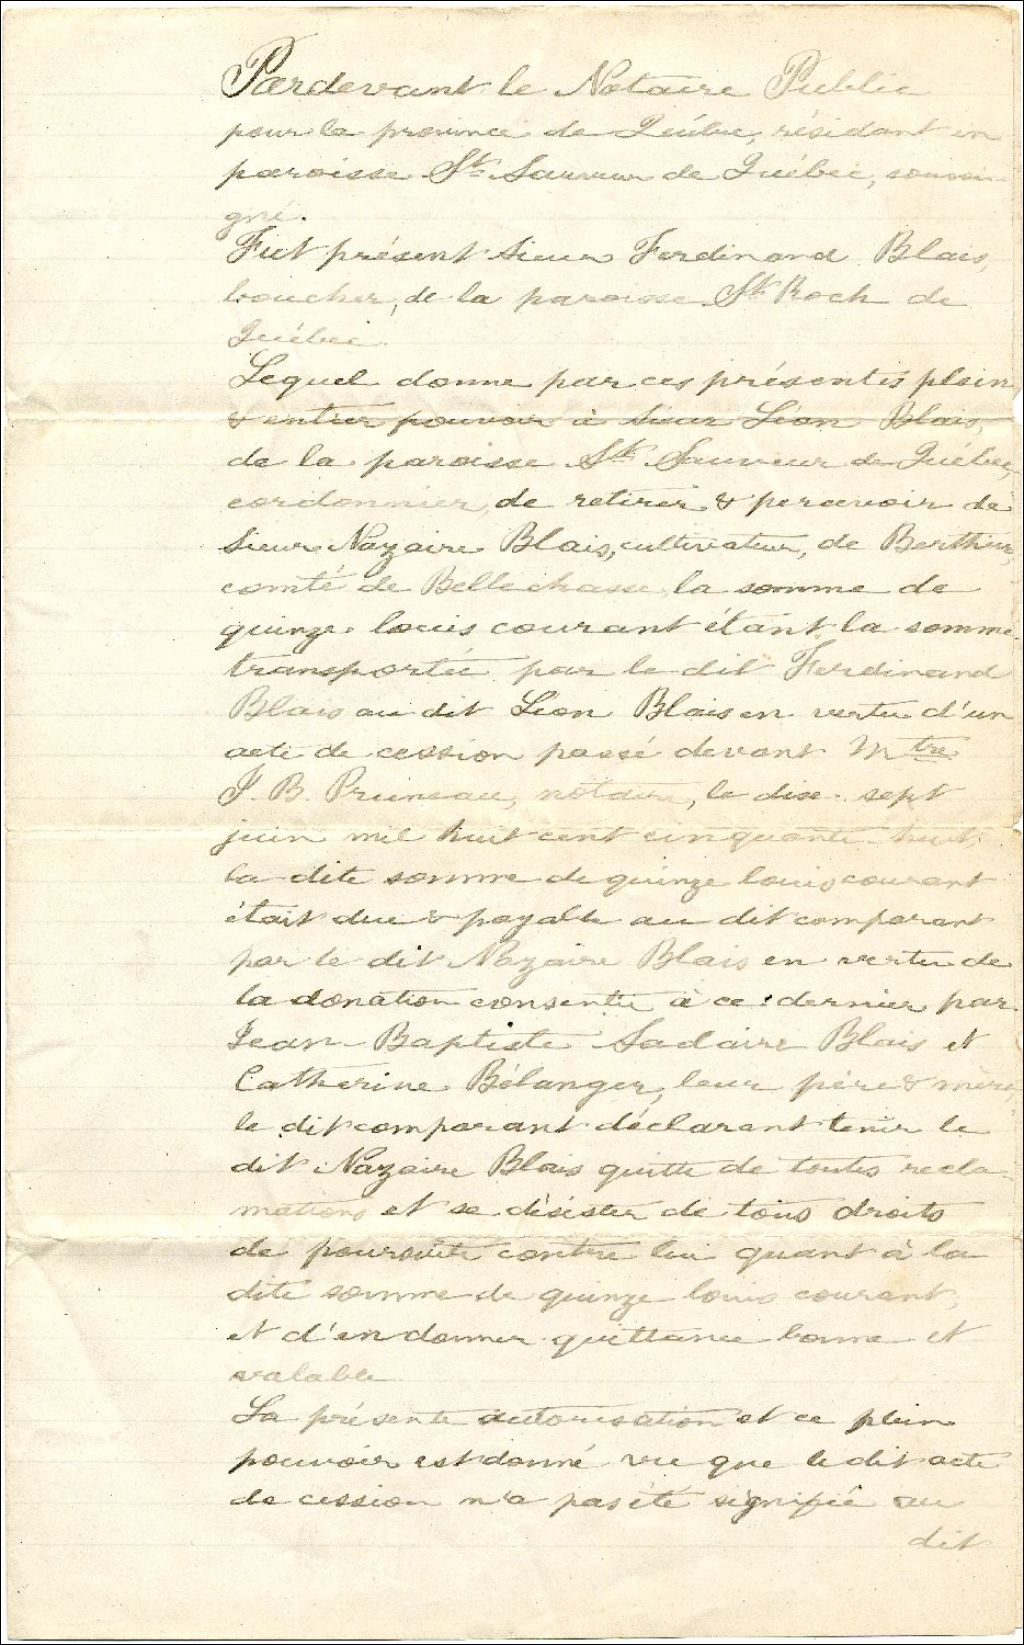 Pardevant le Notaire Public
pour la province de Québec, résidant en
paroisse St. Sauveur de Québec, soussi-
gné.
Fut présent Sieur Ferdinand Blais,
boucher, de la paroisse St Roch de
Québec.
Lequel donne par ces présentes plein
& entier pouvoir à Sieur Léon Blais,
de la paroisse St. Sauveur de Québec,
cordonnier, de retirer & percevoir de
Sieur Nazaire Blais, cultivateur, de Berthier,
comté de Bellechasse, la somme de
quinze louis courant étant la somme
transportée par le dit Ferdinand
Blais au dit Léon Blais en vertu d'un
acte de cession passé devant Mtre
J. B. Pruneau, notaire, le dix-sept
juin mil huit cent cinquante-huit,
la dite somme de quinze louis courant
était due & payable au dit comparant
par le dit Nazaire Blais en vertu de
la donation consentie à ce dernier par
Jean-Baptiste Ladaire Blais et
Catherine Bélanger, leur père & mère,
le dit comparant déclarant tenir le
dit Nazaire Blais quitte de toutes récla-
mations et se désister de tous droits
de poursuite contre lui quant à la
dite somme de quinze louis courant,
et d'en donner quittance bonne et
valable.
La présente autorisation et ce plein
pouvoir est donné vu que le dit acte
de cession n'a pas été signifié au
dit